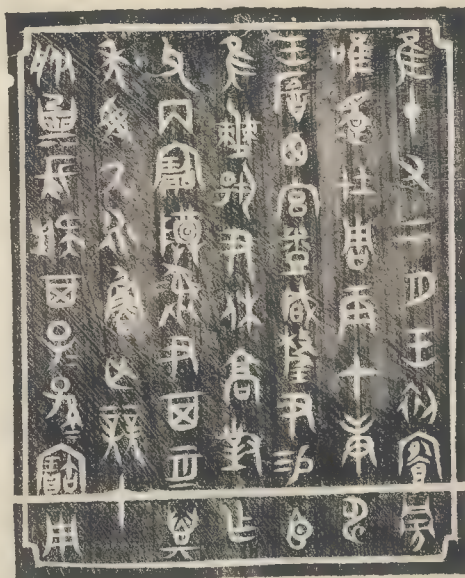 隹十又二月王初饔旁
唯還在周辰才庚申
王飲西宮烝咸釐尹易臣
隹小僰揚尹休高對乍
父丙寶尊彝尹其亙萬
年受氒永魯亡競才
服㠱長疑其子子孫孫寶用